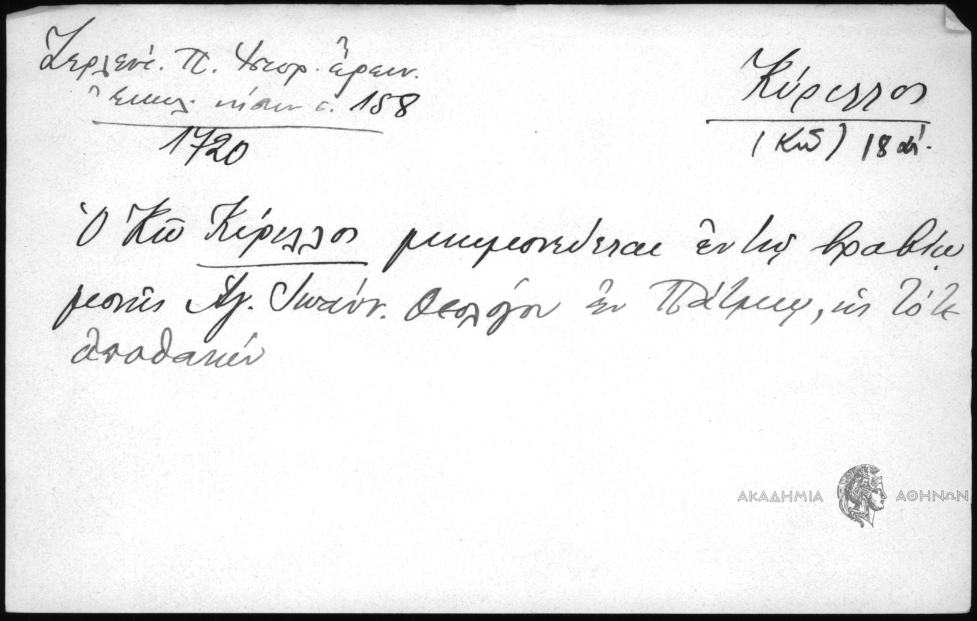 Ζερλέντ. Π. Ἱστορ. ἔρευν.
Ἐκκλ. νήσων σ. 158
1720
Κύριλλος
(Κῶ) 18 αἰ.
Ὁ Κῶ Κύριλλος μνημονεύεται ἐν τῷ βραβίῳ
μονῆς Ἁγ. Ἰωάνν. Θεολόγου ἐν Πάτμῳ, ὡς τότε
ἀποθανών
ΑΚΑΔΗΜΙΑ ΑΘΗΝΩΝ